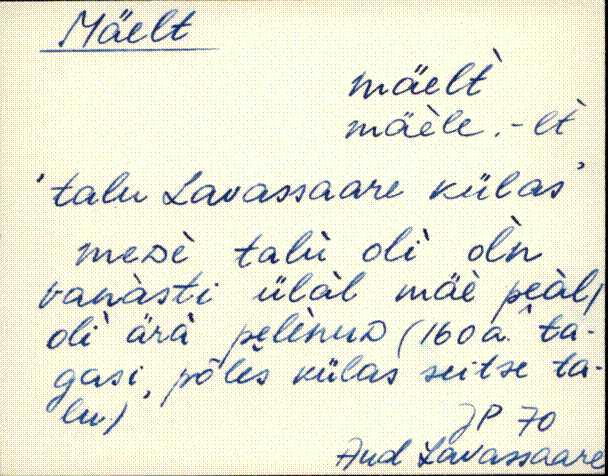 Mäelt
mäelt̀
mäèle, -lt̀
'talu Lavassaare külas'
meᴅè talù olì òlǹ
vanàsti ülàl mäè peàl,
olì ärà pelènuᴅ (160 a. ta-
gasi, põlès külas seitse ta-
lu)
JP 70
Aud Lavassaare